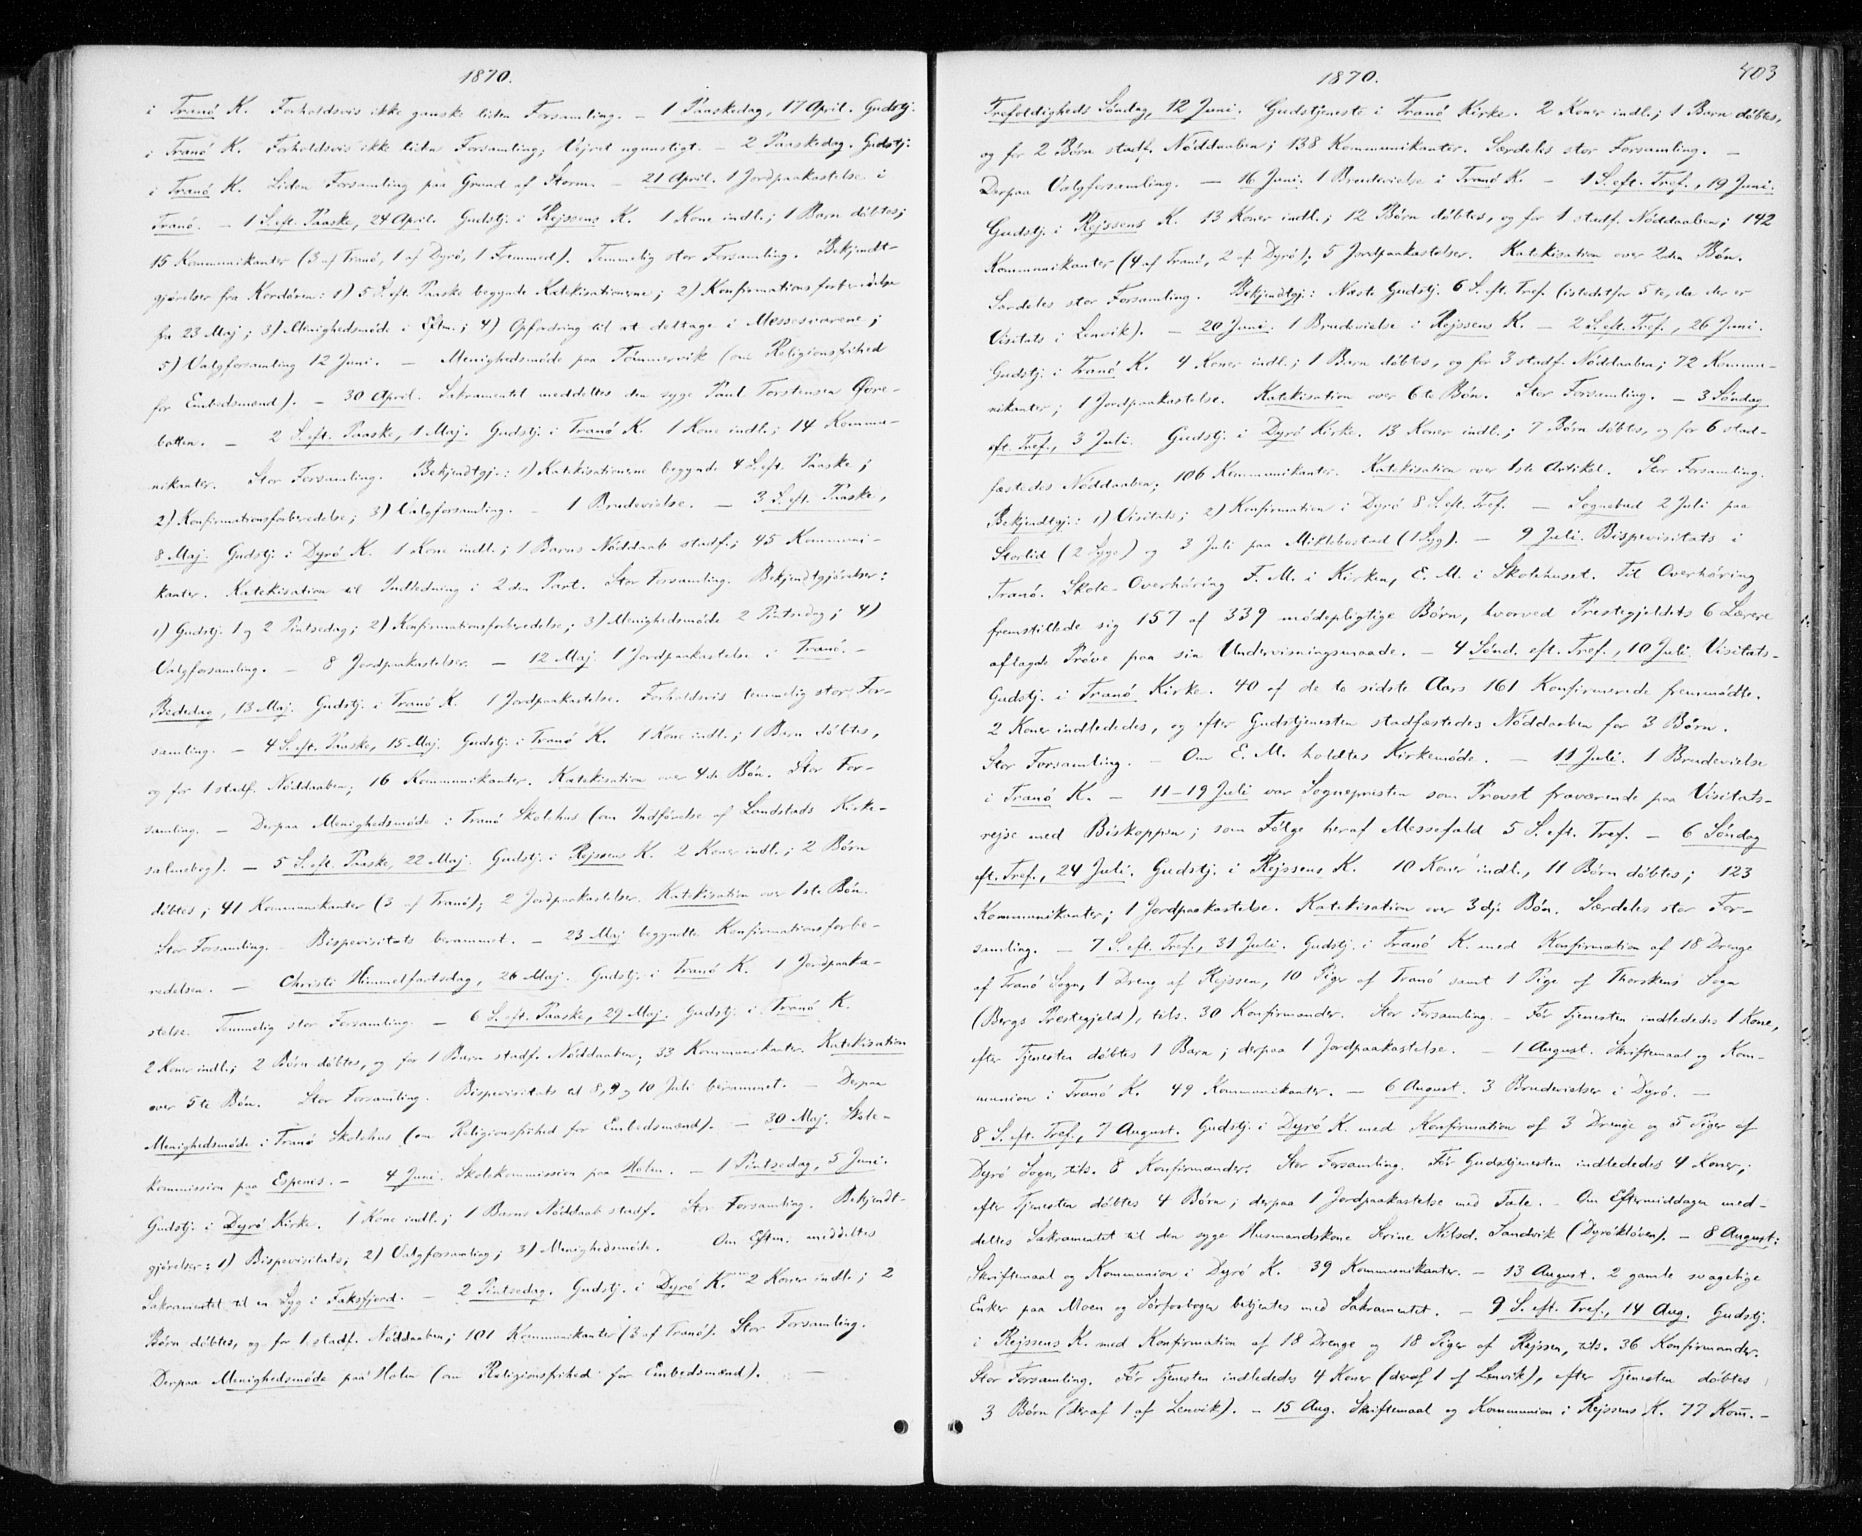 1870.
i Tranö K. Forholdsvis ikke ganske liden Forsamling. – 1 Paaskedag, 17 April. Gudstj.
i Tranö K. Forholdsvis ikke liden Forsamling; Vejret ugunstigt. – 2 Paaskedag. Gudstj.
i Tranö K. Liden Forsamling paa Grund af Storm. – 21 April. 1 Jordpaakastelse i
Tranö. – 1 S. eft. Paaske, 24 April. Gudstj. i Rejssens K. 1 Kone indl.; 1 Barn döbtes;
15 Kommunikanter (3 af Tranö, 1 af Dyrö, 1 Fremmed). Temmelig stor Forsamling. Bekjendt-
gjörelser fra Kordören: 1) 5 S. eft. Paaske begynde Katekisationerne; 2) Konfirmationsforberedelse
fra 23 Maj; 3) Menighedsmöde i Eftm.; 4) Opfordring til at deltage i Messesvarene;
5) Valgforsamling 12 Juni. – Menighedsmöde paa Tömmervik (om Religionsfrihed
for Embedsmænd). – 30 April. Sakramentet meddeltes den syge Paul Torstensen Övre-
botten. – 2 S. eft. Paaske, 1 Maj. Gudstj. i Tranö K. 1 Kone indl.; 14 Kommu-
nikanter. Stor Forsamling. Bekjendtgj.: 1) Katekisationerne begynde 4 S. eft. Paaske;
2) Konfirmationsforberedelse; 3) Valgforsamling. – 1 Brudevielse. – 3 S. eft. Paaske,
8 Maj. Gudstj. i Dyrö K. 1 Kone indl.; 1 Barns Nöddaab stadf.; 45 Kommuni-
kanter. Katekisation til Indledning i 2den Part. Stor Forsamling. Bekjendtgjörelser:
1) Gudstj. 1 og 2 Pintsedag; 2) Konfirmationsforberedelse; 3) Menighedsmöde 2 Pintsedag; 4)
Valgforsamling. – 8 Jordpaakastelser. – 12 Maj. 1 Jordpaakastelse i Tranö. –
Bededag, 13 Maj. Gudstj. i Tranö K. 1 Jordpaakastelse. Forholdsvis temmelig stor For-
samling. – 4 S. eft. Paaske, 15 Maj. Gudstj. i Tranö K. 1 Kone indl.; 1 Barn döbtes,
og for 1 stadf. Nöddaaben; 16 Kommunikanter. Katekisation over 4de Bön. Stor For-
samling. – Derpaa Menighedsmöde i Tranö Skolehus (om Indförelse af Landstads Kirke-
salmebog). – 5 S. eft. Paaske, 22 Maj. Gudstj. i Rejssens K. 2 Koner indl.; 2 Börn
döbtes; 41 Kommunikanter (3 af Tranö); 2 Jordpaakastelser. Katekisation over 1ste Bön.
Stor Forsamling. – Bispevisitats berammet. – 23 Maj begyndte Konfirmationsforbe-
redelsen. – Christi Himmelfartsdag, 26 Maj. Gudstj. i Tranö K. 1 Jordpaaka-
stelse. Temmelig stor Forsamling. – 6 S. eft. Paaske, 29 Maj. Gudstj. i Tranö K.
2 Koner indl.; 2 Börn döbtes, og for 1 Barn stadf. Nöddaaben; 33 Kommunikanter. Katekisation
over 5te Bön. Stor Forsamling. Bispevisitats til 8, 9 og 10 Juli berammet. – Derpaa
Menighedsmöde i Tranö Skolehus (om Religionsfrihed for Embedsmænd). – 30 Maj. Skole-
kommission paa Espenes. – 4 Juni. Skolekommission paa Holm. – 1 Pintsedag, 5 Juni.
Gudstj. i Dyrö Kirke. 1 Kone indl.; 1 Barns Nöddaab stadf. Stor Forsamling. Bekjendt-
gjörelser: 1) Bispevisitats; 2) Valgforsamling; 3) Menighedsmöde. Om Eftm. meddeltes
Sakramentet til en Syg i Faksfjord. – 2 Pintsedag. Gudstj. i Dyrö K. 2 Koner indl.; 2
Börn döbtes, og for 1 stadf. Nöddaaben; 101 Kommunikanter (3 af Tranö). Stor Forsamling.
Derpaa Menighedsmöde paa Holm (om Religionsfrihed for Embedsmænd). –
1870.
403
Trefoldigheds Söndag, 12 Juni. Gudstjeneste i Tranö Kirke. 2 Koner indl.; 1 Barn döbtes,
og for 2 Börn stadf. Nöddaaben; 138 Kommunikanter. Særdeles stor Forsamling. –
Derpaa Valgforsamling. – 16 Juni. 1 Brudevielse i Tranö K. – 1 S. eft. Tref., 19 Juni.
Gudstj. i Rejssens K. 13 Koner indl.; 12 Börn döbtes, og for 1 stadf. Nöddaaben; 142
Kommunikanter (4 af Tranö, 2 af Dyrö); 5 Jordpaakastelser. Katekisation over 2den Bön.
Særdeles stor Forsamling. Bekjendtgj.: Næste Gudstj. 6 S. eft. Tref. (istedetfor 5te, da der er
Visitats i Lenvik). – 20 Juni. 1 Brudevielse i Rejssens K. – 2 S. eft. Tref., 26 Juni.
Gudstj. i Tranö K. 4 Koner indl.; 1 Barn döbtes, og for 3 stadf. Nöddaaben; 72 Kommu-
nikanter; 1 Jordpaakastelse. Katekisation over 6te Bön. Stor Forsamling. – 3 Söndag
eft. Tref., 3 Juli. Gudstj. i Dyrö Kirke. 13 Koner indl.; 7 Börn döbtes, og for 6 stad-
fæstedes Nöddaaben; 106 Kommunikanter. Katekisation over 1ste Artikel. Stor Forsamling.
Bekjendtgj.: 1) Visitats; 2) Konfirmation i Dyrö 8 S. eft. Tref. – Sognebud 2 Juli paa
Storlid (2 Syge) og 3 Juli paa Miklebostad (1 Syg). – 9 Juli. Bispevisitats i
Tranö. Skole-Overhöring F. M. i Kirken, E. M. i Skolehuset. Til Overhöring
fremstillede sig 157 af 339 mödepligtige Börn, hvorved Prestegjeldets 6 Lærere
aflagde Pröve paa sin Undervisningsmaade. – 4 Sönd. eft. Tref., 10 Juli. Visitats-
Gudstj. i Tranö Kirke. 40 af de to sidste Aars 161 Konfirmerede fremmödte.
2 Koner indlededes, og efter Gudstjenesten stadfæstedes Nöddaaben for 3 Börn.
Stor Forsamling. – Om E. M. holdtes Kirkemöde. – 11 Juli. 1 Brudevielse
i Tranö K. – 11–19 Juli var Sognepresten som Provst fraværende paa Visitats-
rejse med Biskoppen; som Fölge heraf Messefald 5 S. eft. Tref. – 6 Söndag
eft. Tref., 24 Juli. Gudstj. i Rejssens K. 10 Koner indl., 11 Börn döbtes; 123
Kommunikanter; 1 Jordpaakastelse. Katekisation over 3dje Bön. Særdeles stor For-
samling. – 7 S. eft. Tref., 31 Juli. Gudstj. i Tranö K. med Konfirmation af 18 Drenge
af Tranö Sogn, 1 Dreng af Rejssen, 10 Piger af Tranö samt 1 Pige af Thorskens Sogn
(Bergs Prestegjeld), tils. 30 Konfirmander. Stor Forsamling. – För Tjenesten indlededes 1 Kone,
efter Tjenesten döbtes 1 Barn; derpaa 1 Jordpaakastelse. – 1 August. Skriftemaal og Kom-
munion i Tranö K. 49 Kommunikanter. – 6 August. 3 Brudevielser i Dyrö. –
8 S. eft. Tref., 7 August. Gudstj. i Dyrö K. med Konfirmation af 3 Drenge og 5 Piger af
Dyrö Sogn, tils. 8 Konfirmander. Stor Forsamling. För Gudstjenesten indlededes 4 Koner;
efter Tjenesten döbtes 4 Börn; derpaa 1 Jordpaakastelse med Tale. – Om Eftermiddagen med-
deltes Sakramentet til den syge Husmandskone Serine Nilsd. Sandvik (Dyröklöven). – 8 August:
Skriftemaal og Kommunion i Dyrö K. 39 Kommunikanter. – 13 August. 2 gamle svagelige
Enker paa Moen og Sörforbogen betjentes med Sakramentet. – 9 S. eft. Tref., 14 Aug. Gudstj.
i Rejssens K. med Konfirmation af 18 Drenge og 18 Piger af Rejssen, tils. 36 Konfirmander.
Stor Forsamling. För Tjenesten indlededes 4 Koner (deraf 1 af Lenvik), efter Tjenesten döbtes
3 Börn (deraf 1 af Lenvik). – 15 Aug. Skriftemaal og Kommunion i Rejssens K. 77 Kom̅. –